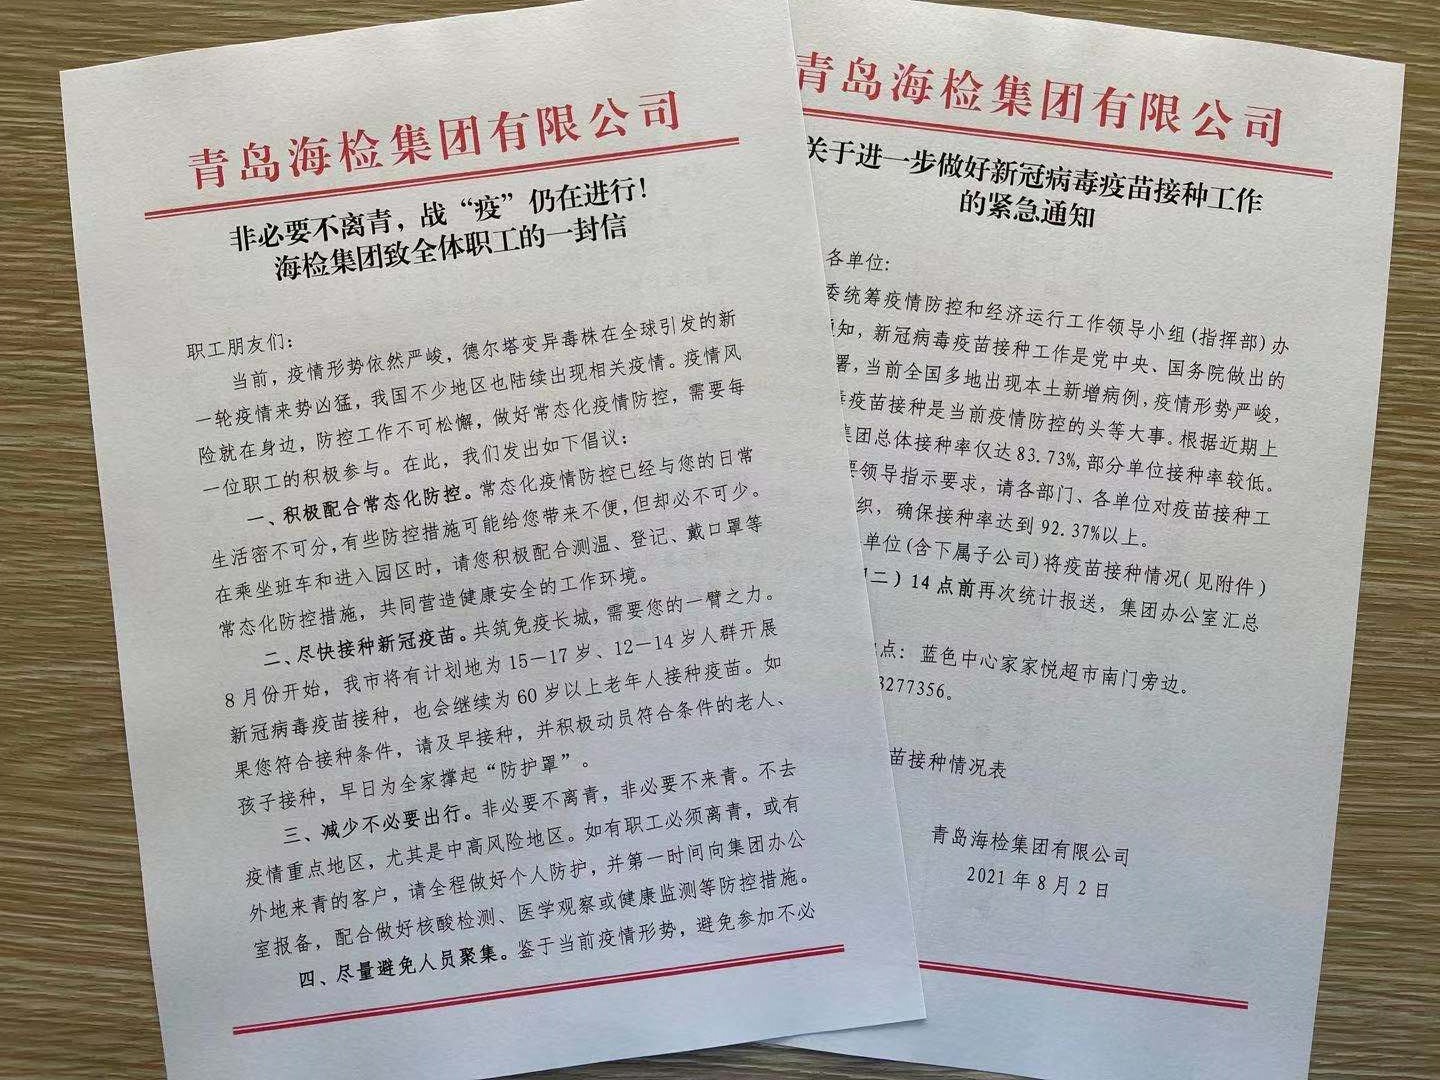 青岛海检集团有限公司
非必要不离青，战“疫”仍在进行！
海检集团致全体职工的一封信
职工朋友们：
当前，疫情形势依然严峻，德尔塔变异毒株在全球引发的新
一轮疫情来势凶猛，我国不少地区也陆续出现相关疫情。疫情风
险就在身边，防控工作不可松懈，做好常态化疫情防控，需要每
一位职工的积极参与。在此，我们发出如下倡议：
一、积极配合常态化防控。常态化疫情防控已经与您的日常
生活密不可分，有些防控措施可能给您带来不便，但却必不可少。
在乘坐班车和进入园区时，请您积极配合测温、登记、戴口罩等
常态化防控措施，共同营造健康安全的工作环境。
二、尽快接种新冠疫苗。共筑免疫长城，需要您的一臂之力。
8月份开始，我市将有计划地为15－17岁、12－14岁人群开展
新冠病毒疫苗接种，也会继续为60岁以上老年人接种疫苗。如
果您符合接种条件，请及早接种，并积极动员符合条件的老人、
孩子接种，早日为全家撑起“防护罩”。
三、减少不必要出行。非必要不离青，非必要不来青。不去
疫情重点地区，尤其是中高风险地区。如有职工必须离青，或有
外地来青的客户，请全程做好个人防护，并第一时间向集团办公
室报备，配合做好核酸检测、医学观察或健康监测等防控措施。
四、尽量避免人员聚集。鉴于当前疫情形势，避免参加不必
青岛海检集团有限公司
关于进一步做好新冠病毒疫苗接种工作
的紧急通知
各单位：
委统筹疫情防控和经济运行工作领导小组(指挥部)办
通知，新冠病毒疫苗接种工作是党中央、国务院做出的
署，当前全国多地出现本土新增病例，疫情形势严峻，
毒疫苗接种是当前疫情防控的头等大事。根据近期上
集团总体接种率仅达83.73%，部分单位接种率较低。
要领导指示要求，请各部门、各单位对疫苗接种工
织，确保接种率达到92.37%以上。
单位(含下属子公司)将疫苗接种情况(见附件)
二）14点前再次统计报送，集团办公室汇总
点：蓝色中心家家悦超市南门旁边。
3277356。
苗接种情况表
青岛海检集团有限公司
2021年8月2日